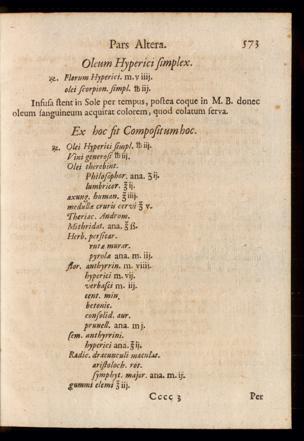 Pars Altera. 573
Oleum Hyperici ſimplex.
℞. Florum Hyperici. m. v iiij.
olei ſcorpion. ſimpl. ℔ iij.
Infuſa ſtent in Sole per tempus, poſtea coque in M. B. donec
oleum ſanguineum acquirat colorem, quod colatum ſerva.
Ex hoc fit Compoſitum hoc.
℞. Olei Hyperici ſimpl. ℔ iij.
Vini generoſi ℔ iij.
Olei therebint.
Philoſophor. ana. ℥ ij.
lumbricor. ℥ ij.
axung. human. ℥ iiij.
medullæ cruris cervi ℥ v.
Theriac. Androm.
Mithridat. ana. ℥ ß.
Herb. perſicar.
rutæ murar.
pyrolæ ana. m. iij.
flor. anthyrrin. m. viiij.
hyperici m. vij.
verbaſci m. iij.
cent. min.
betonic.
conſolid. aur.
prunell. ana. m j.
ſem. anthyrrini.
hyperici ana. ℥ ij.
Radic. dracunculi maculat.
ariſtoloch. rot.
ſymphyt. major. ana. m. ij.
gummi elemi ℥ iij.
Cccc 3 Per